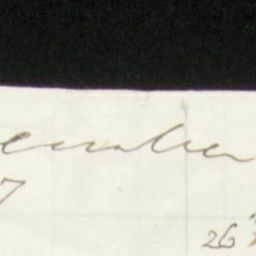 ember
7
26